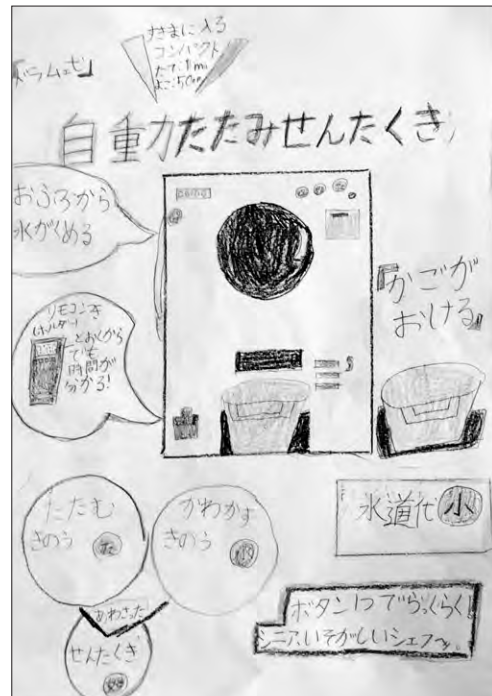 すきまに入る
コンパクト
たて:1m
よこ:50cm
『ドラム式』
自重力たたみせんたくき
おふろから
水がくめる
リモコンき
ホルダー
とおくから
でも
時間が
分かる!
『かごが
おける』
たたむ
きのう
かわかす
きのう
水道代 小
あわさった
せんたくき
ボタン1つでらっくらく
シニア、いそがしいシェフへ。